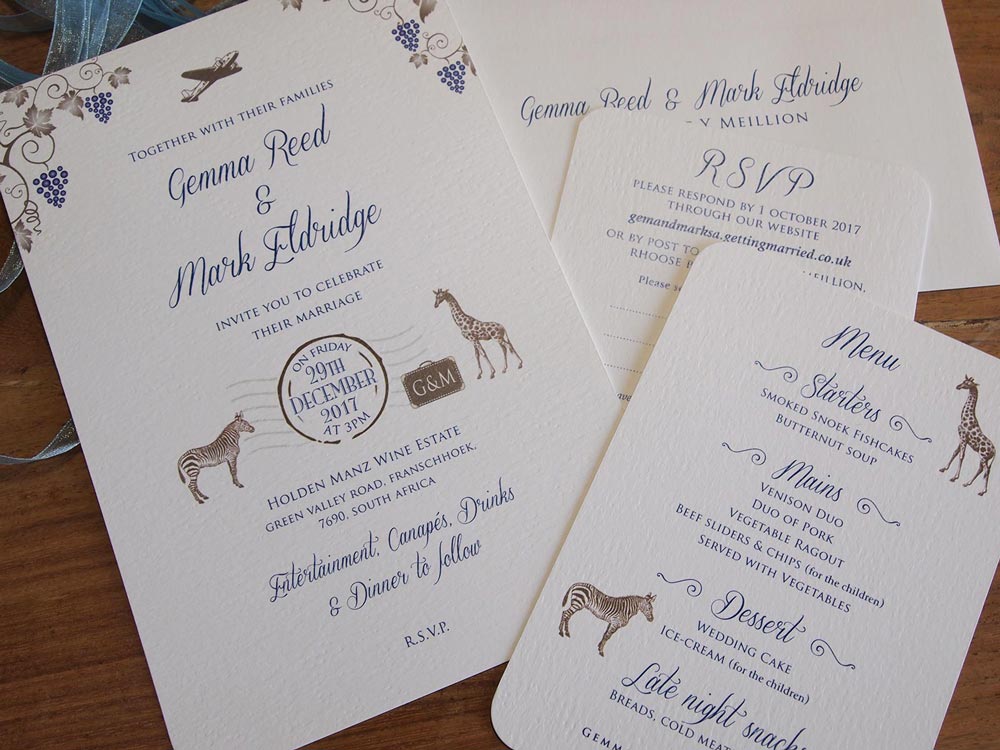 Together with their families
Gemma Reed
&
Mark Eldridge
invite you to celebrate
their marriage
on Friday
29th
December
2017
at 3pm
G&M
Holden Manz Wine Estate
Green Valley Road, Franschhoek,
7690, South Africa
Entertainment, Canapés, Drinks
& Dinner to follow
R.S.V.P.
Gemma Reed & Mark Eldridge
Meillion
RSVP
Please respond by 1 October 2017
through our website
gemandmarksa.gettingmarried.co.uk
or by post to
Rhoose
Meillion,
Please
Menu
Starters
Smoked Snoek Fishcakes
Butternut Soup
Mains
Venison Duo
Duo of Pork
Vegetable Ragout
Beef sliders & chips (for the children)
Served with Vegetables
Dessert
Wedding Cake
Ice-cream (for the children)
Late night snacks
Breads, cold meat